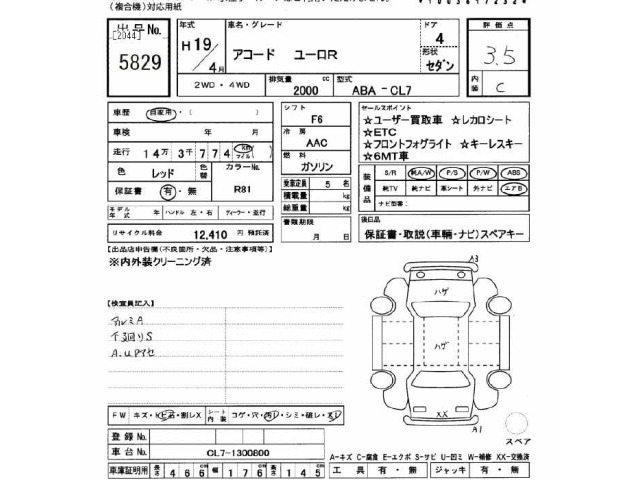 (複合機)対応用紙
出品No.
[2044]
5829
年式 車名・グレード ドア 評価点
H19/4月 アコード ユーロR 4 3.5
形状
セダン
2WD・4WD 排気量 2000 cc 型式 ABA-CL7 内装 C
車歴 自家用・( )
車検 年 月
走行 14万3千774 Km マイル
色 レッド 色替 カラーNo. R81
保証書 有・無
モデル年式 年 ハンドル 左・右 ディーラー・並行
リサイクル料金 12,410 円 預託済
シフト F6
冷房 AAC
燃料 ガソリン
乗車定員 5 名
積載量 kg
総重量 kg
書類期限
月 日
セールスポイント
☆ユーザー買取車 ☆レカロシート
☆ETC
☆フロントフォグライト ☆キーレスキー
☆6MT車
装備品 S/R 純A/W P/S P/W ABS
純TV 純ナビ 革シート 外ナビ エアB
ナビ型番:
後日品
保証書・取説(車輛・ナビ)スペアキー
【出品店申告欄(不良箇所・欠品・注意事項等)】
※内外装クリーニング済
【検査員記入】
アルミA
下廻りS
A.Uアセ
A3
ハゲ
ハゲ
XX
A1
スペア
FW キズ・ヒ石・割レX シート内装 コゲ・穴・汚レ・シミ・破レ・スレ
登録No.
車台No. CL7-1300800
車庫証明用 長さ 466 幅 176 高さ 145
A-キズ C-腐食 E-エクボ S-サビ U-凹ミ W-補修 XX-交換済
工具 有・無 ジャッキ 有・無